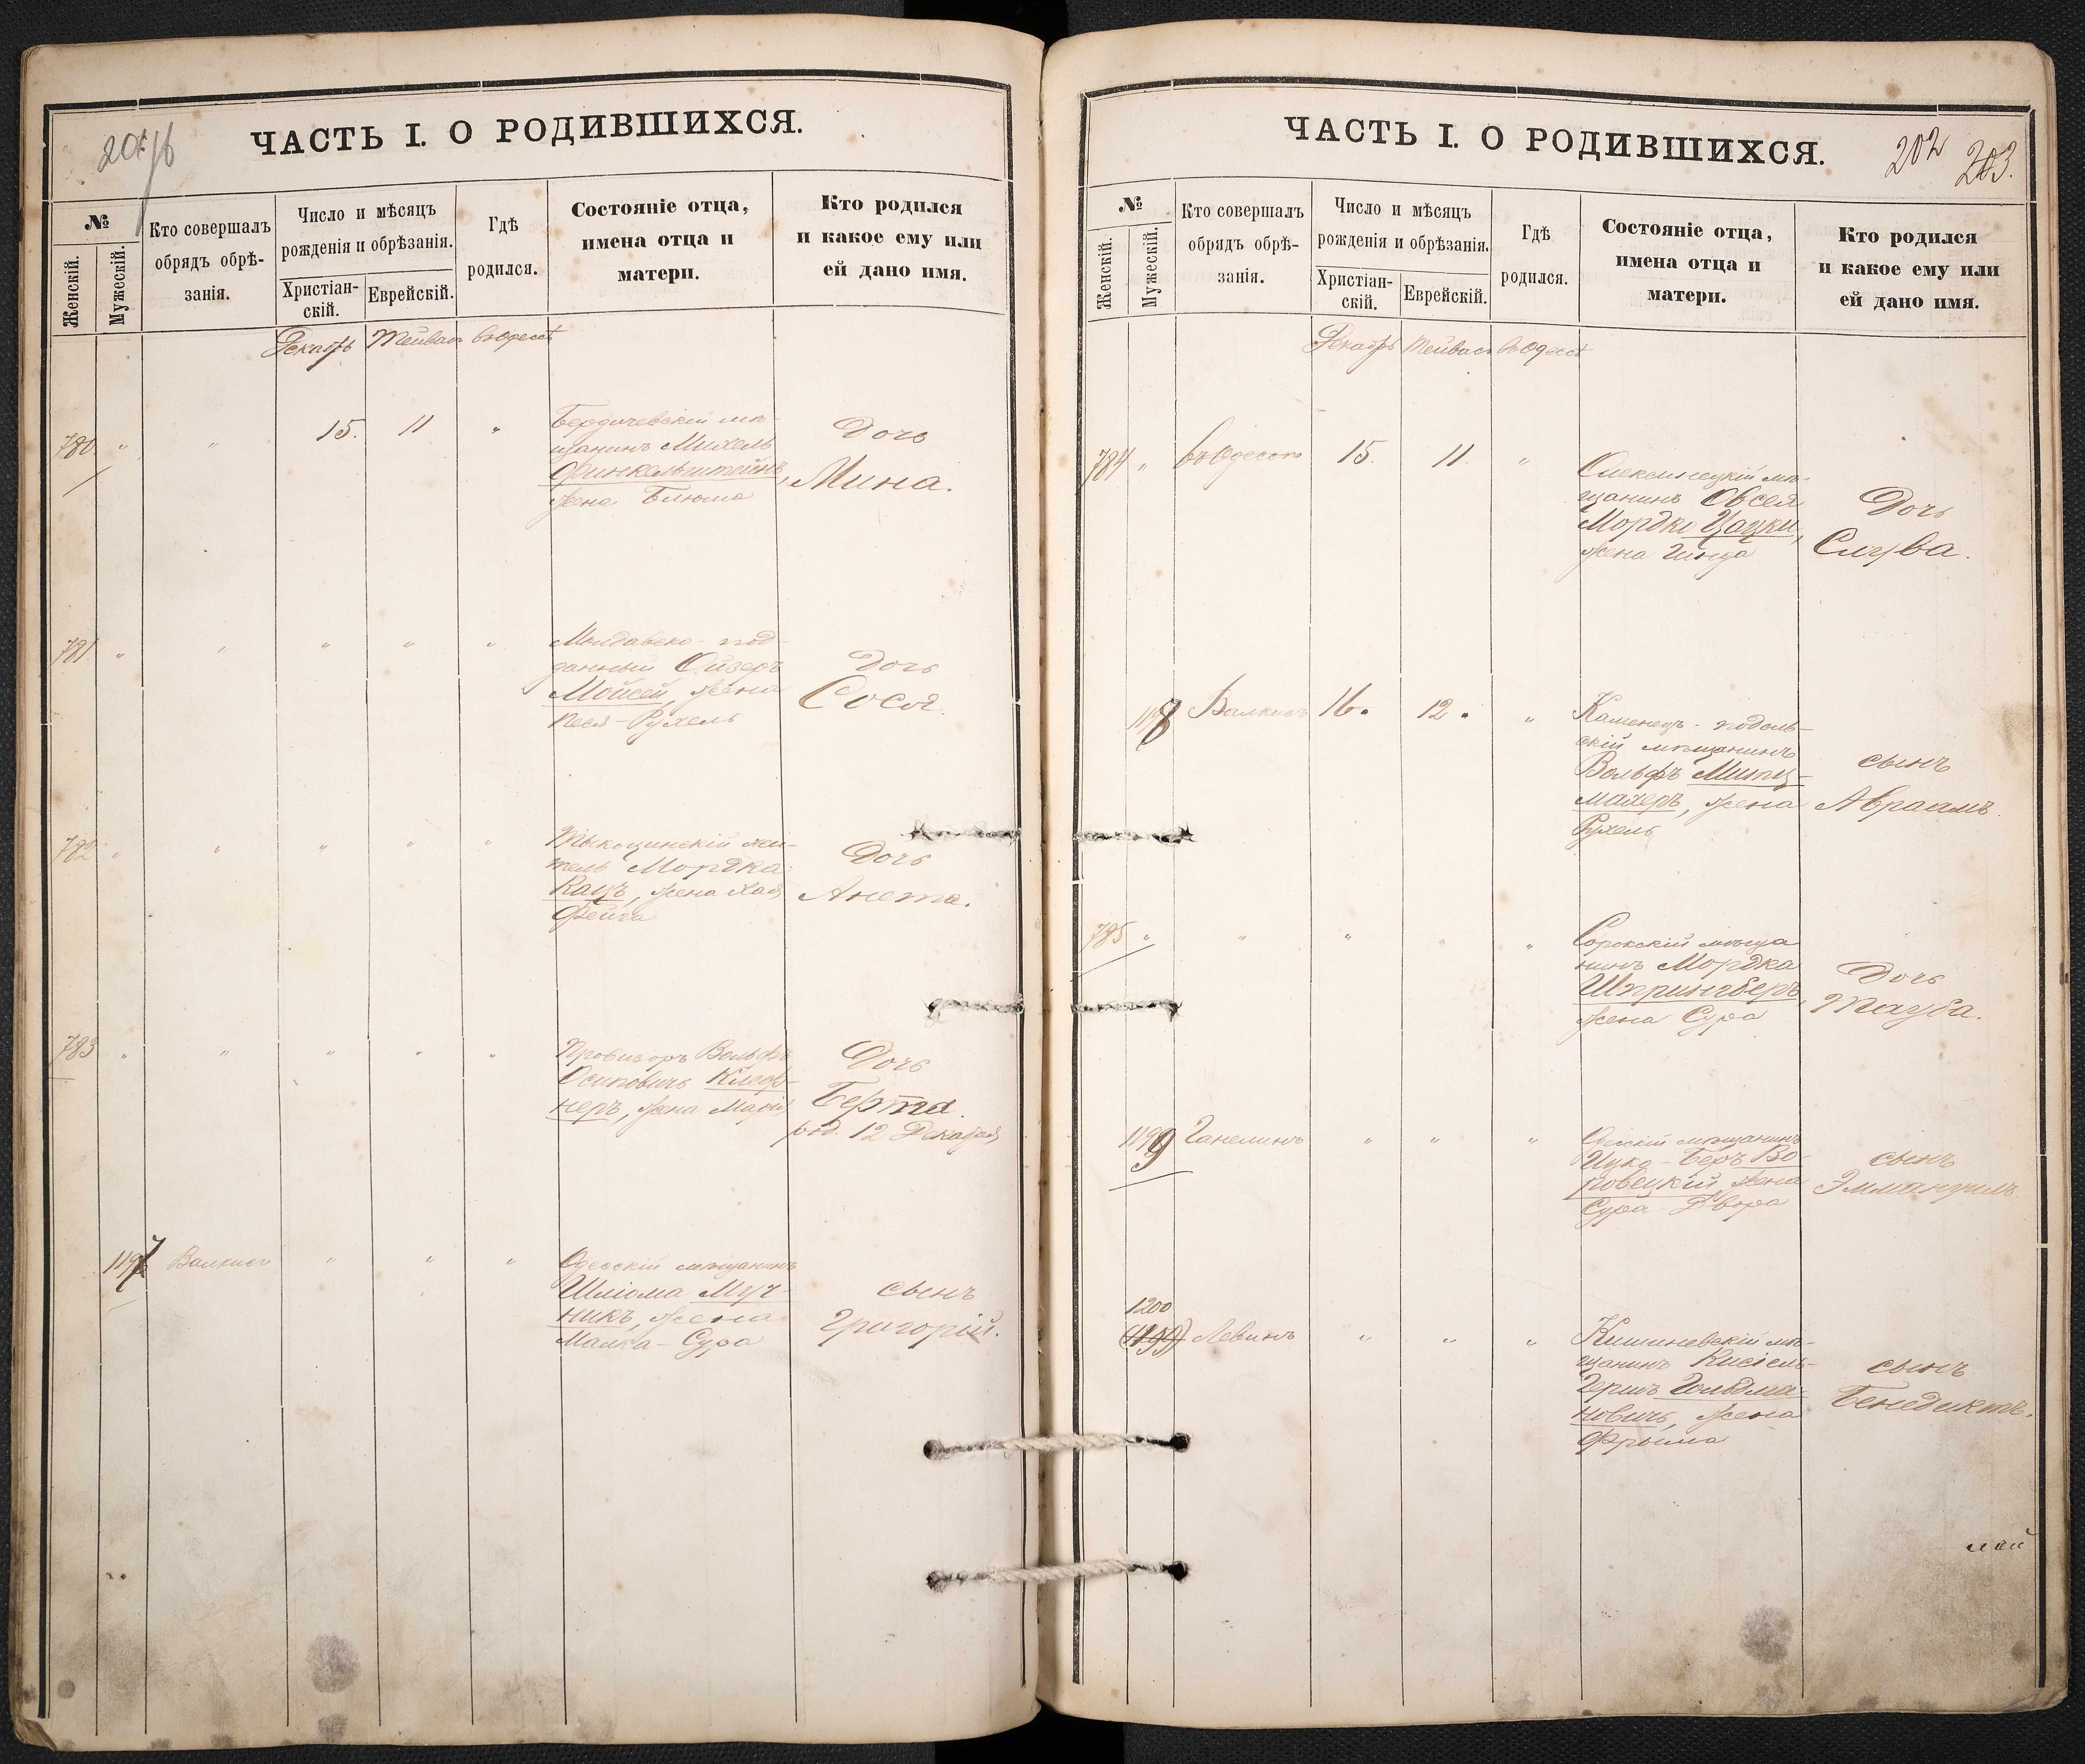 ЧАСТЬ I. О РОДИВШИХСЯ.
№
Женскій.
Мужескій.
Кто совершалъ
обрядъ обрѣ-
занія.
Число и мѣсяцъ
рожденія и обрѣзанія.
Христіан-
скій.
Еврейскій.
Гдѣ
родился.
Состояніе отца,
имена отца и
матери.
Кто родился
и какое ему или
ей дано имя.
Декабрь Тейвас въ Одессѣ
780 " " 15. 11 "
Бердичевскій мѣ-
щанинъ Михель
Финкельштейнъ,
жена Блюма
Дочь
Мина.
781 " " " " "
Молдавско-под-
данный Ойзеръ
Мойсей, жена
Песя-Рухель
Дочь
Сося.
782 " " " " "
Тыкоцинскій жи-
тель Мордка
Кацъ, жена Хая
Фейга
Дочь
Анета.
783 " " " " "
Провизоръ Вольфъ
Осиповичъ Клеф-
неръ, жена Марія
Дочь
Берта.
род. 12 Декабря
1197 Валкисъ " " "
Одесскій мѣщанинъ
Шліома Муч-
никъ, жена
Малка-Сура
сынъ
Григорій.
ЧАСТЬ I. О РОДИВШИХСЯ.
202 203.
№
Женскій.
Мужескій.
Кто совершалъ
обрядъ обрѣ-
занія.
Число и мѣсяцъ
рожденія и обрѣзанія.
Христіан-
скій.
Еврейскій.
Гдѣ
родился.
Состояніе отца,
имена отца и
матери.
Кто родился
и какое ему или
ей дано имя.
Декабрь Тейвас въ Одессѣ
784 " въ Одессѣ 15. 11. "
мѣ-
щанинъ Овсей
Мордко Цацки,
жена Гинда
Дочь
Слува.
1198 Валкисъ 16. 12. "
Каменецъ-подоль-
скій мѣщанинъ
Вольфъ Митц-
махеръ, жена
Рухель
сынъ
Авраамъ.
785 " " " " "
Сорокскій мѣща
нинъ Мордка
Шпрингберъ
жена Сура
Дочь
Тауба.
1199 Ганелинъ " " "
мѣщанинъ
Ицко-Беръ Во-
ровецкій, жена
Сура-Двора
сынъ
Эммануилъ.
1200
(1199) Левинъ " " "
Кишиневскій мѣ-
щанинъ Кисіель-
Гершъ Гольдма-
новичъ, жена
Фрыма
сынъ
Бенедиктъ.